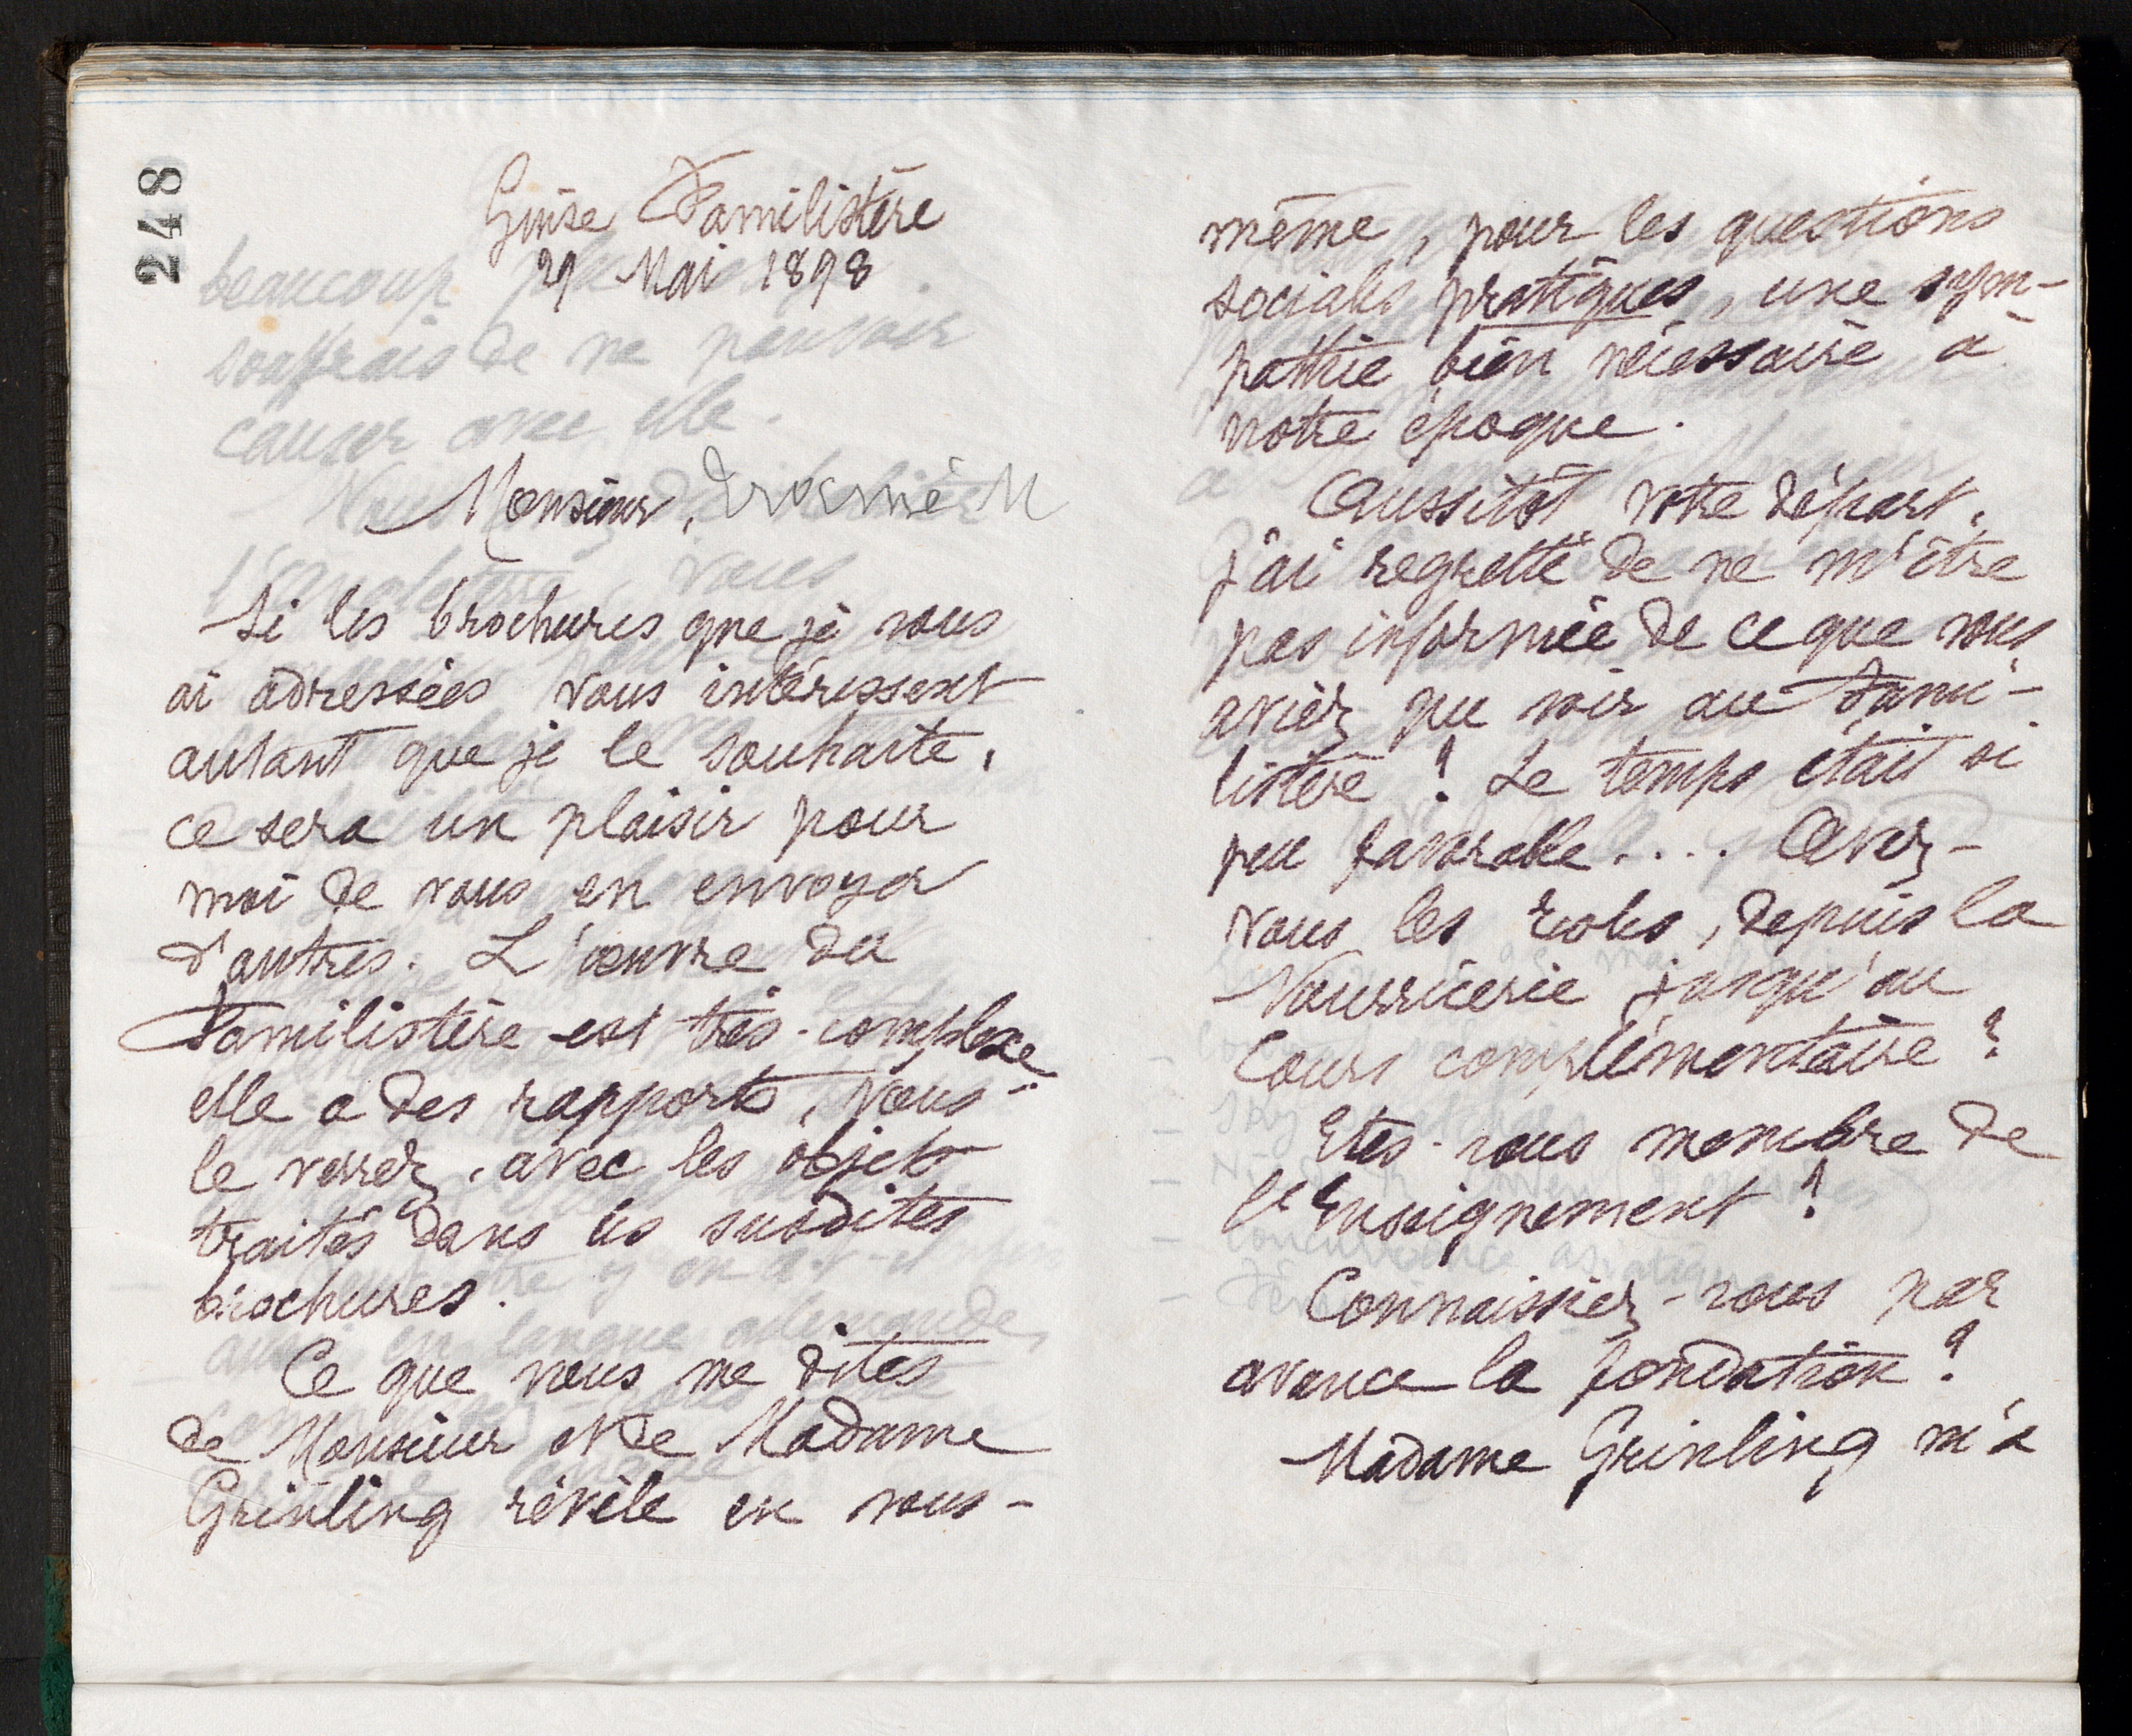 248
Guise Familistère
29 Mai 1898
Monsieur,
Si les brochures que je vous
ai adressées vous intéressent
autant que je le souhaite,
ce sera un plaisir pour
moi de vous en envoyer
d'autres. L'œuvre du
Familistère est très-complexe
elle a des rapports, vous
le verrez, avec les objets
traités dans les susdites
brochures.
Ce que vous me dites
de Monsieur et de Madame
Grinling révèle en vous-
même, pour les questions
sociales pratiques, une sym-
pathie bien nécessaire à
notre époque.
Aussitôt votre départ,
j'ai regretté de ne m'être
pas informée de ce que vous
aviez pu voir au Fami-
listère ! Le temps était si
peu favorable.... Avez-
vous les écoles, depuis la
Nourricerie jusqu'au
Cours complémentaire ?
Etes-vous membre de
l'Enseignement ?
Connaissiez-vous par
avance la fondation ?
Madame Grinling m'a